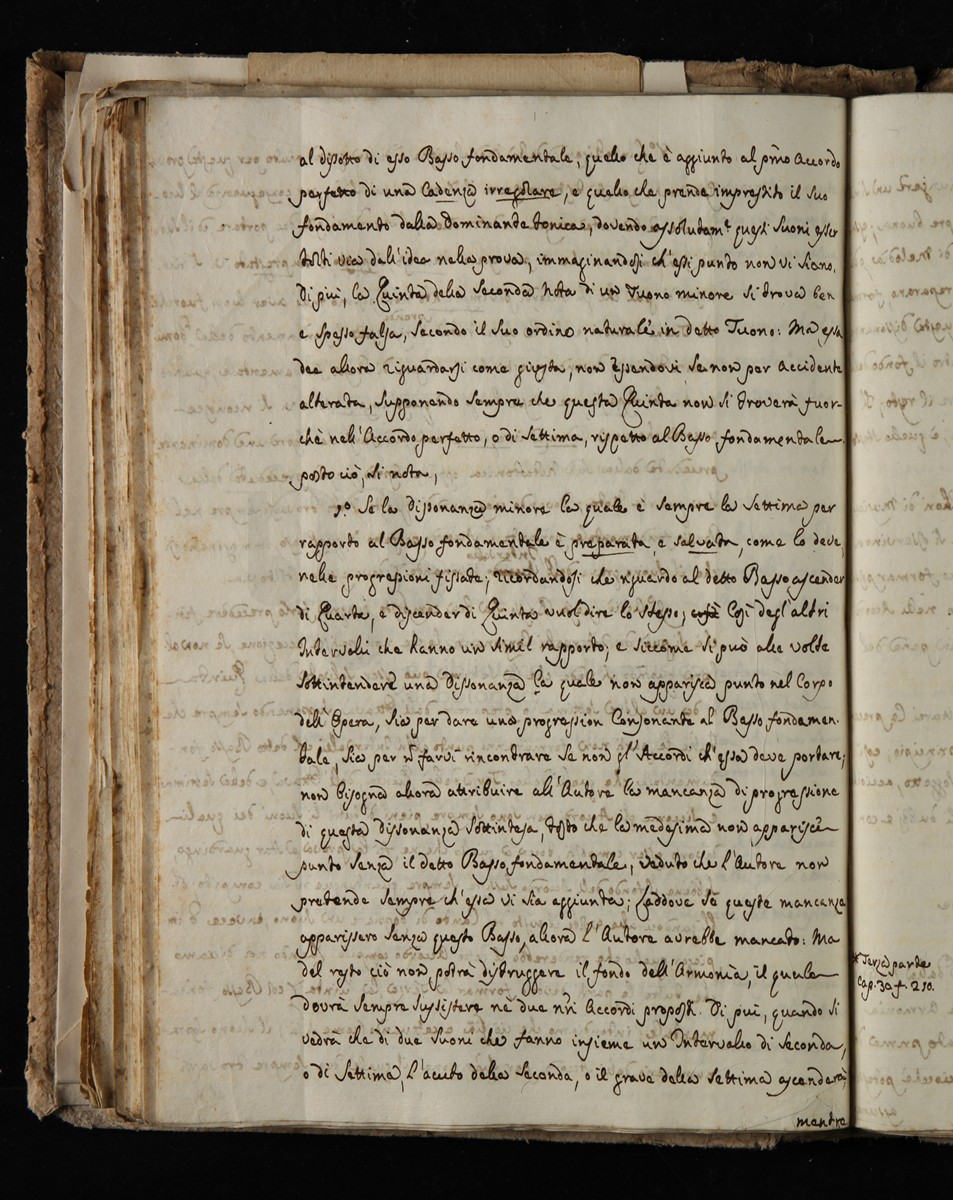 al disotto di esso Basso fondamentale, quello che è aggiunto al pmo Accordo
perfetto di una Cadenza irregolare, e quello che prende imprestito il suo
fondamento dalla Dominante tonica, dovendo assolutamte questi suoni esser
tolti via dall'idea nella prova, immaginandosi ch'essi punto non vi siano.
Di più, la Quinta della seconda Nota di un Tuono minore si trova ben
e spesso falsa, secondo il suo ordine naturale in detto Tuono: Ma essa
dee allora riguardarsi come giusta, non essendovi se non per accidente
alterata, supponendo sempre che questa Quinta non si troverà fuor-
chè nell'Accordo perfetto, o di Settima, rispetto al Basso fondamentale.
posto ciò, si nota,
1.º Se la dissonanza minore la quale è sempre la Settima per
rapporto al Basso fondamentale è preparata, e salvata, come lo deve,
nelle progressioni fissate; ricordandosi che riguardo al detto Basso ascender
di Quarta, e discender di Quinta vuol dire lo stesso; Così degl'altri
Intervalli che hanno un simil rapporto; e siccome si può alle volte
sottintendere una Dissonanza la quale non apparisca punto nel Corpo
dell'Opera, sia per dare una progression Consonante al Basso fondamen-
tale, sia per ñ farvi rincontrare se non gl'Accordi ch'essa deve portare;
non bisogna allora attribuire all'Autore la mancanza di progressione
di questa Dissonanza sottintesa, tosto che la medesima non apparisce
punto senza il detto Basso fondamentale, veduto che l'Autore non
pretende sempre ch'essa vi sia aggiunta; Laddove se queste mancanze
apparissero senza questo Basso, allora l'Autore avrebbe mancato: Ma
del resto ciò non potrà distruggere il fondo dell'Armonia, il quale
dovrà sempre sussistere nè due nñi Accordi proposti. Di più, quando si
vedrà che di due suoni che fanno insieme un Intervallo di Seconda,
o di Settima, l'acuto della Seconda, o il grave della Settima ascenderà,
mentre
* Terza parte
Cap. 30 f. 210.